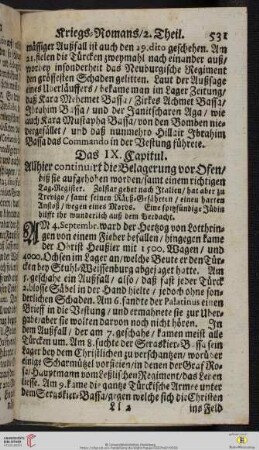 Kriegs-Romans/2. Theil. 531
mässiger Außfall ist auch den 29. dito geschehen. Am
21. fielen die Türcken zweymahl nach einander auß/
wobey insonderheit das Neuburgische Regiment
den grössesten Schaden gelitten. Laut der Außsage
eines Uberläuffers/ bekame man im Lager Zeitung/
daß Cara Mehemet Bassa/ Zirkes Achmet Bassa/
Ibrahim Bassa/ und der Janitscharen Aga/ wie
auch Cara Mustapha Bassa/ von den Bomben nie-
dergefället/ und daß nunmehro Hillair Ibrahim
Bassa das Commando in der Vestung führete.
Das IX. Capitul.
Allhier continuirt die Belagerung vor Ofen/
biß sie aufgehoben worden/ samt einem richtigen
Tag-Register. Zolstar gehet nach Italien/ hat aber zu
Trevigo/ samt seinen Reiß-Gefährten/ einen harten
Anstoß/ wegen eines Mords. Eine fürsündige Jüdin
hilfft ihr wunderlich auß dem Verdacht.
AM 4. Septembr. ward der Hertzog von Lotthrin-
gen von einem Fieber befallen/ hingegen kame
der Obrist Heußler mit 1500. Wagen/ und
4000. Ochsen im Lager an/ welche Beute er den Tür-
cken bey Stuhl-Weissenburg abgejaget hatte. Am
5. geschahe ein Außfall/ also/ daß fast jeder Türck
2. blosse Säbel in der Hand hielte/ jedoch ohne son-
derlichen Schaden. Am 6. sandte der Palatinus einen
Brieff in die Vestung/ und ermahnete sie zur Uber-
gabe/ aber sie wolten davon noch nicht hören. In
dem Außfall/ der am 7. geschahe/ kamen meist alle
Türcken um. Am 8. suchte der Seraskier-Bassa sein
Lager bey dem Christlichen zu verschantzen/ worüber
einige Scharmützel vorfielen/ in denen der Graf Ro-
sa/ Hauptmann vom Leßlischen Regiment/ das Leben
liesse. Am 9. kame die gantze Türckische Armee unter
dem Seraskier-Bassa/ gegen welche sich die Christen
Ll 2 ins Feld